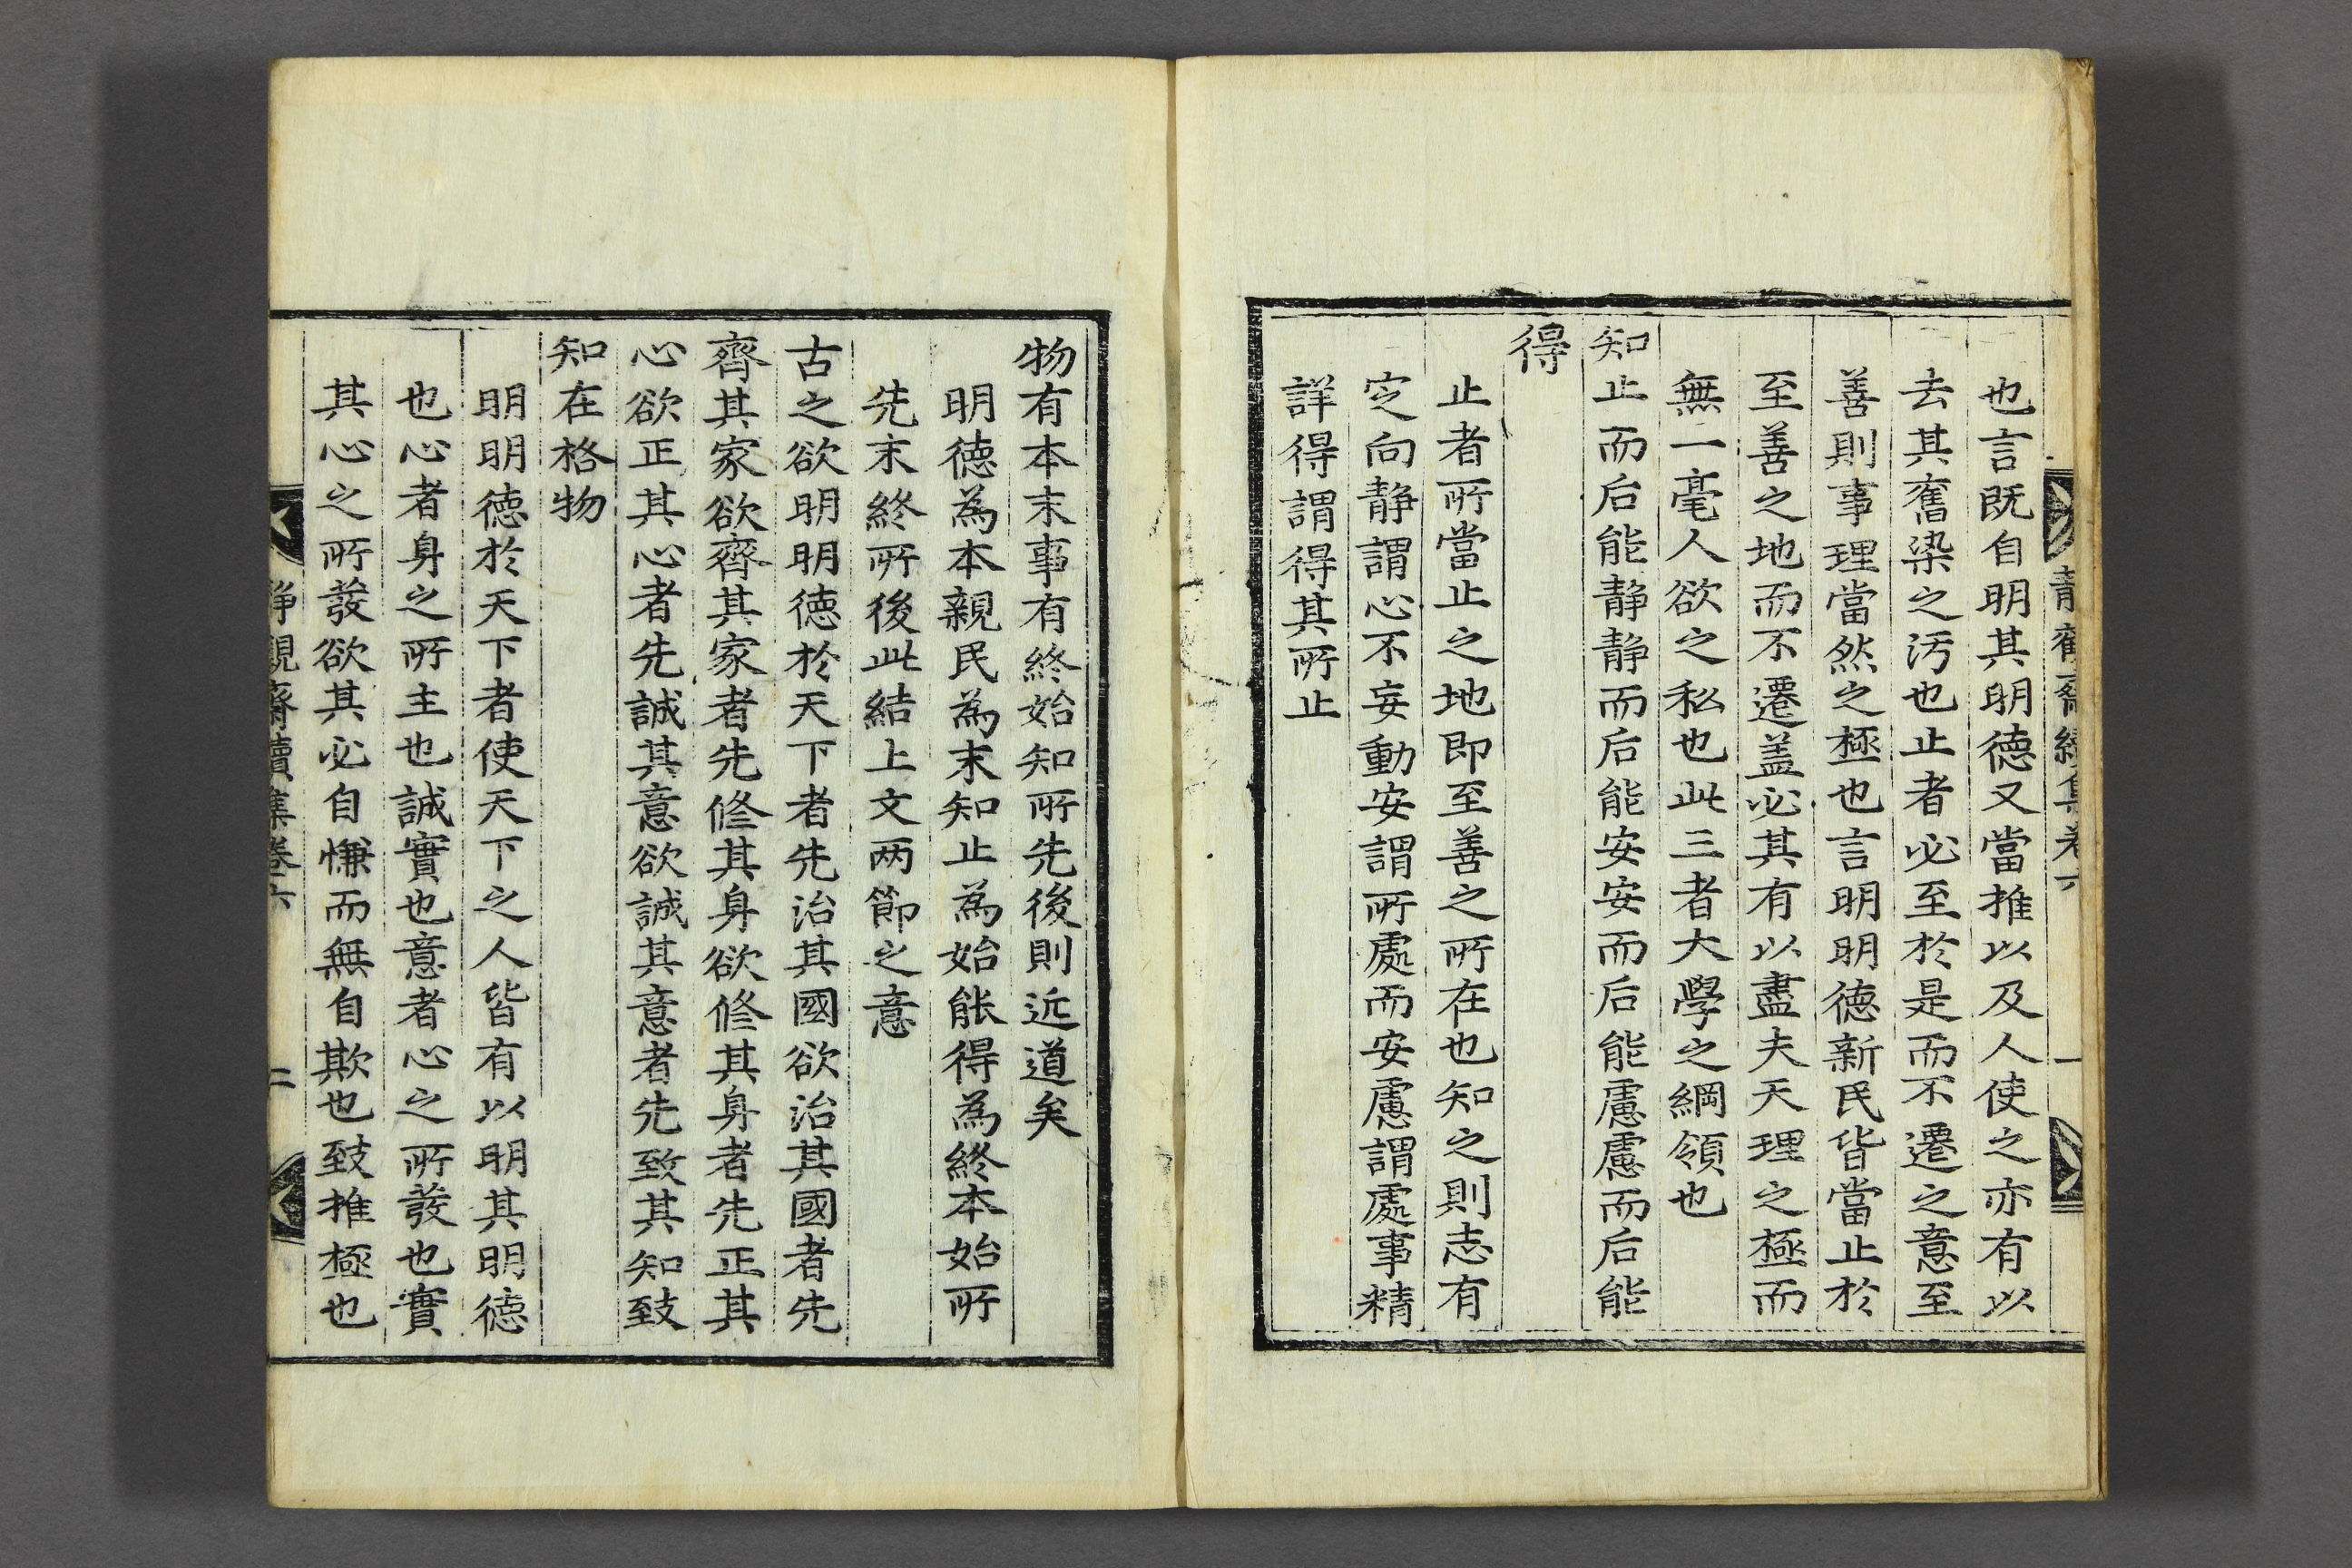 靜觀齋續集卷六 一
也言既自明其明德又當推以及人使之亦有以
去其舊染之汚也止者必至於是而不遷之意至
善則事理當然之極也言明明德新民皆當止於
至善之地而不遷盖必其有以盡夫天理之極而
無一毫人欲之私也此三者大學之綱領也
知止而后能静静而后能安安而后能慮慮而后能
得
止者所當止之地即至善之所在也知之則志有
定向静謂心不妄動安謂所處而安慮謂處事精
詳得謂得其所止
物有本末事有終始知所先後則近道矣
明德為本親民為末知止為始能得為終本始所
先末終所後此結上文两節之意
古之欲明明德於天下者先治其國欲治其國者先
齊其家欲齊其家者先修其身欲修其身者先正其
心欲正其心者先誠其意欲誠其意者先致其知致
知在格物
明明德於天下者使天下之人皆有以明其明德
也心者身之所主也誠實也意者心之所發也實
其心之所發欲其必自慊而無自欺也致推極也
靜觀齋續集卷六 二